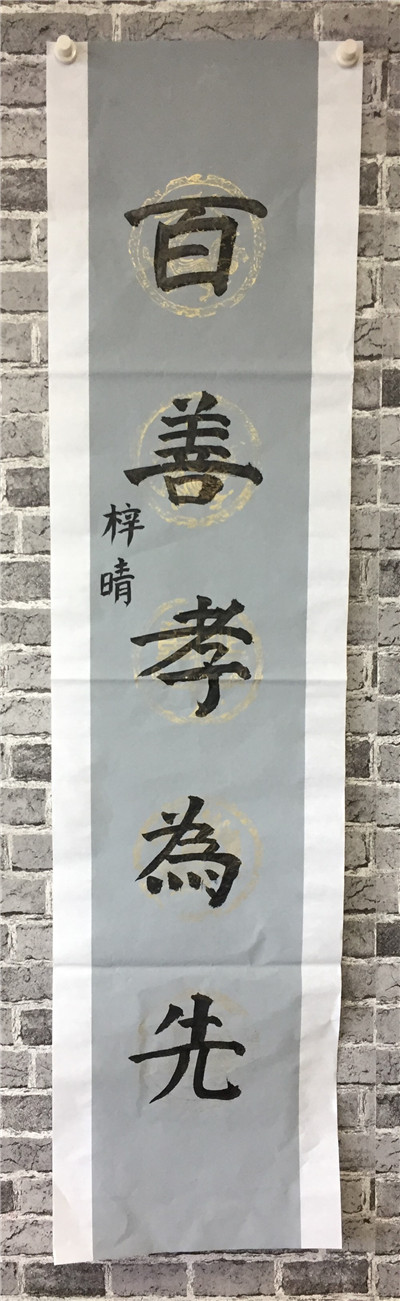 百善孝為先
梓晴